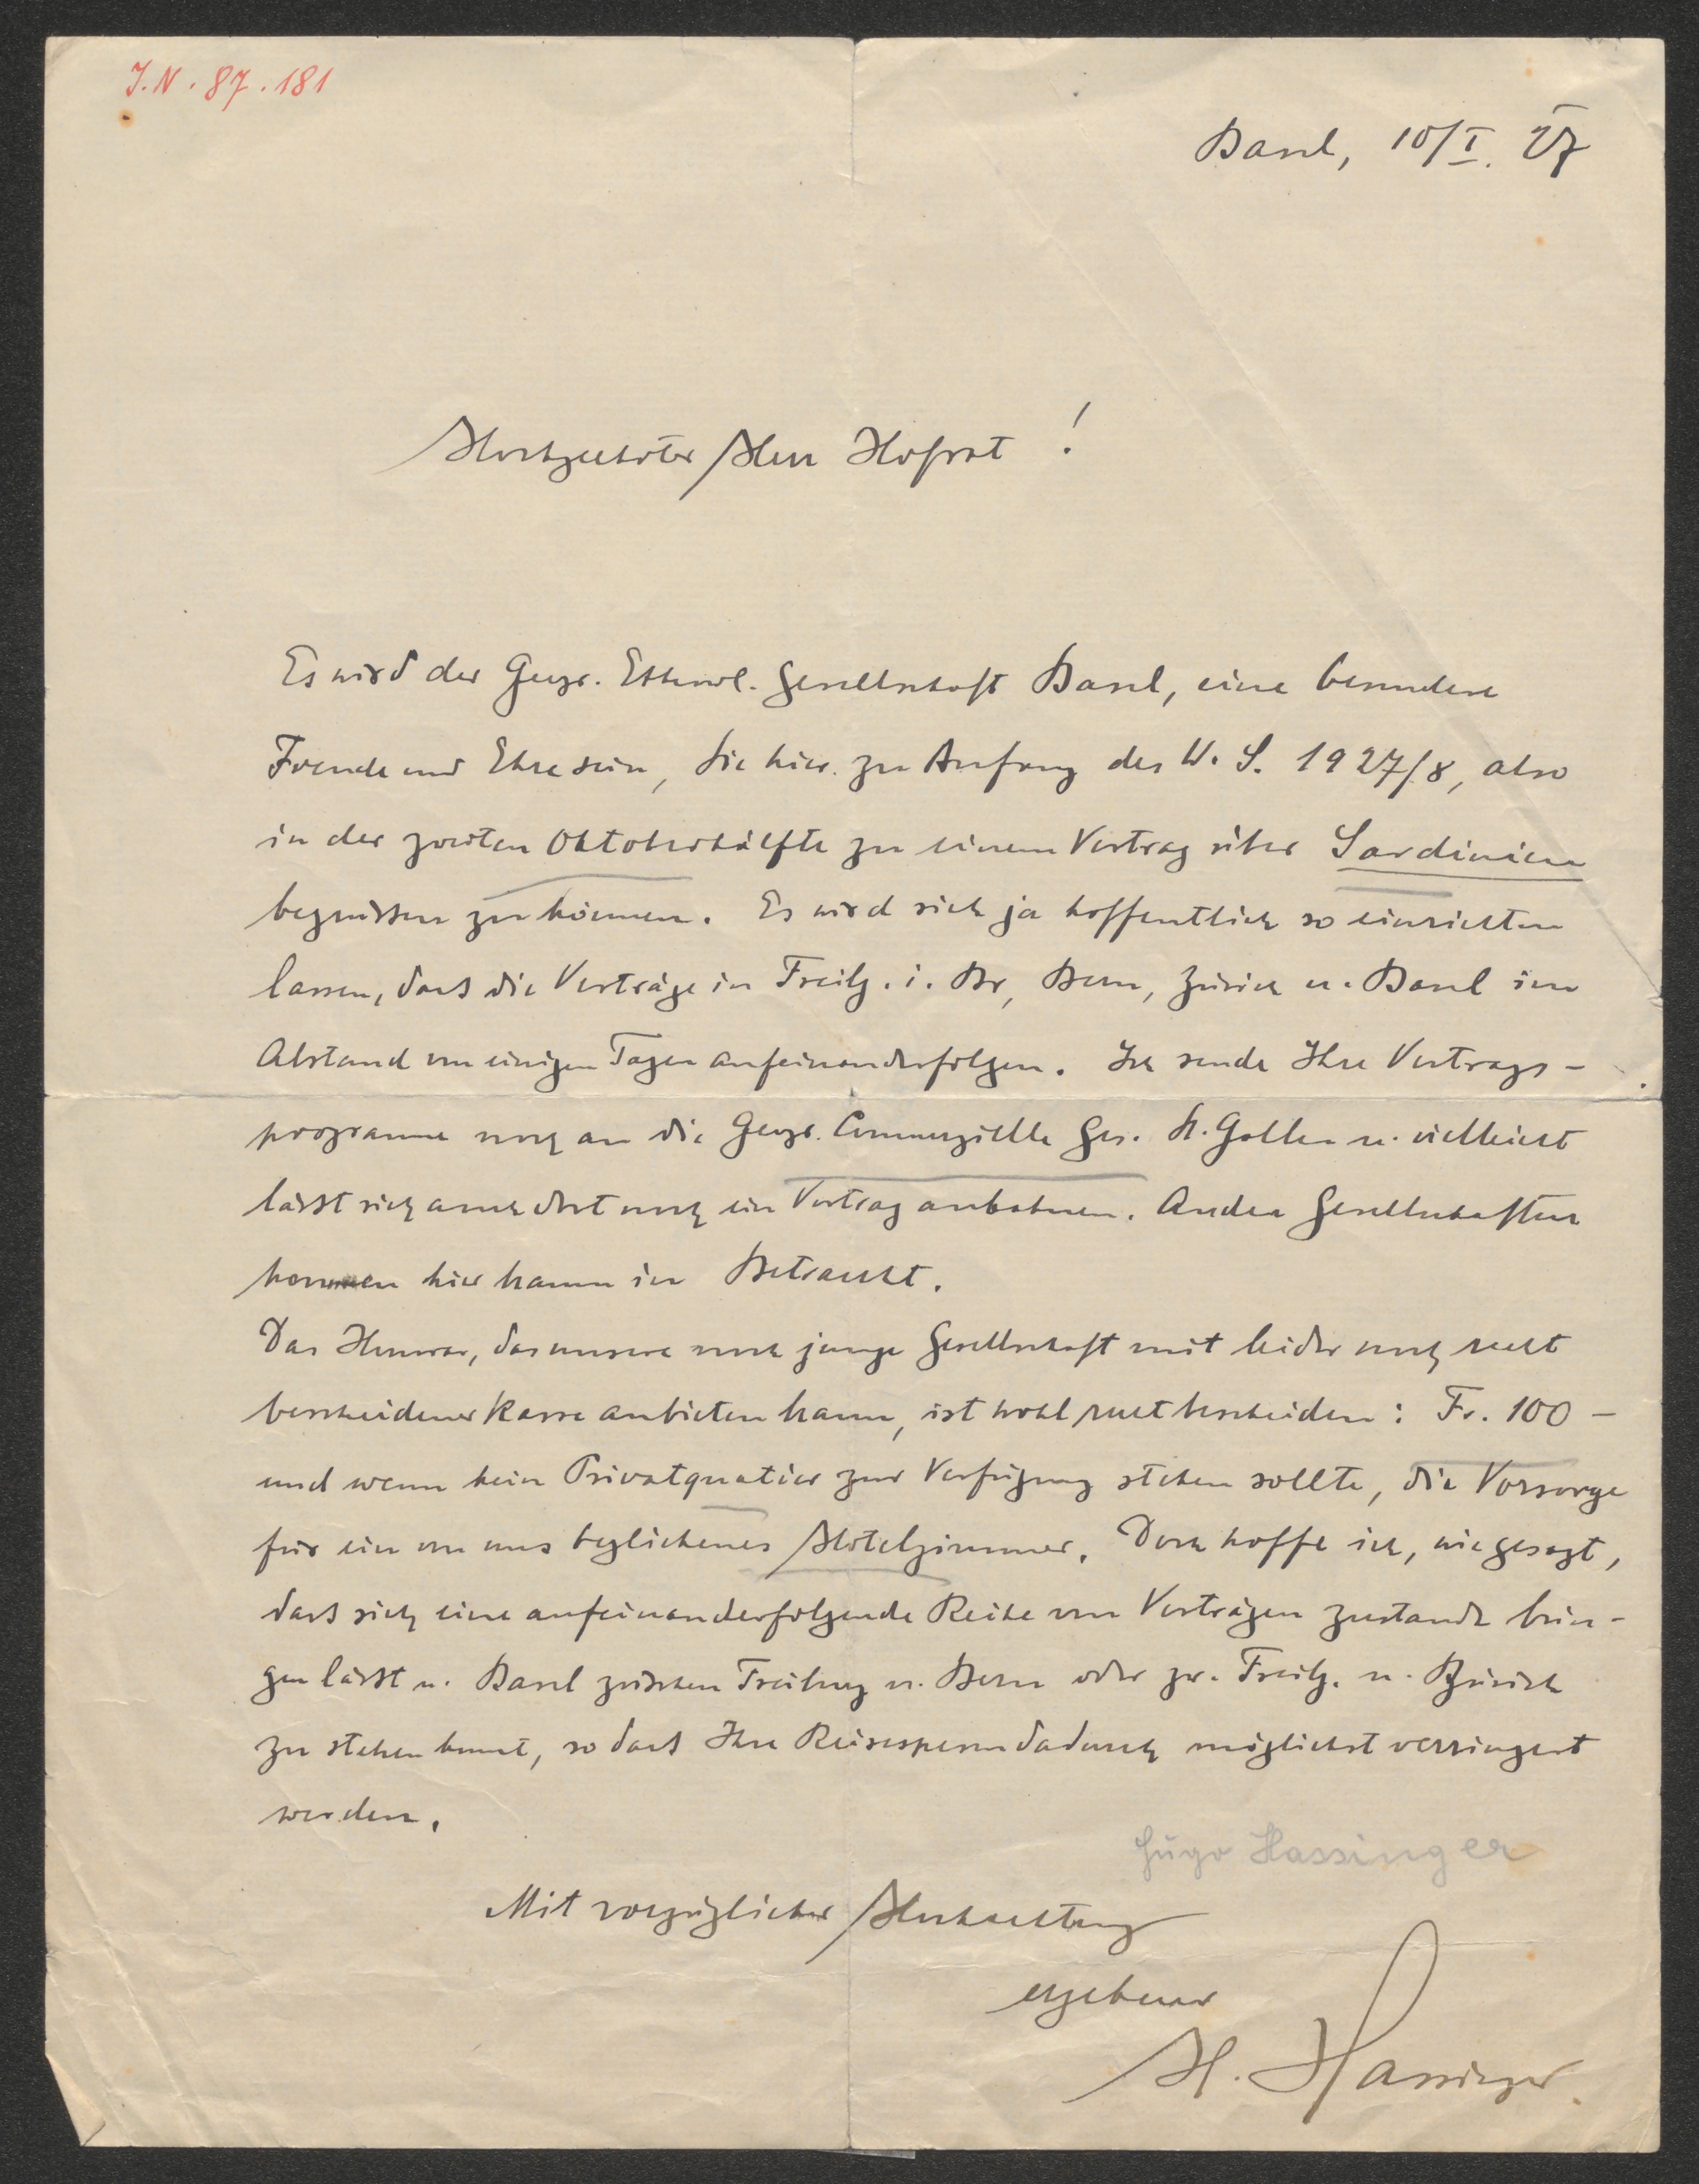 J.N. 87.181
Basel, 10/I. 27
Hochgeehrter Herr Hofrat!
Es wird der Geogr. Ethnol. Gesellschaft Basel, eine besondere
Freude und Ehre sein, Sie hier zu Anfang des W. S. 1927/8, also
in der zweiten Oktoberhälfte zu einem Vortrag über Sardinien
begrüssen zu können. Es wird sich ja hoffentlich so einrichten
lassen, dass die Vorträge in Freibg. i. Br, Bern, Zürich u. Basel im
Abstand von einigen Tagen aufeinanderfolgen. Ich sende Ihre Vortrags-
programme noch an die Geogr. Commerzielle Ges. St. Gallen u. vielleicht
lässt sich auch dort noch ein Vortrag anbahnen. Andere Gesellschaften
kommen hier kaum in Betracht.
Das Honorar, das unsere noch junge Gesellschaft mit leider noch recht
bescheidener Kasse anbieten kann, ist wohl recht bescheiden: Fr. 100 -
und wenn kein Privatquatier zur Verfügung stehen sollte, die Vorsorge
für ein von uns beglichenes Hotelzimmer. Doch hoffe ich, wie gesagt,
dass sich eine aufeinanderfolgende Reihe von Vorträgen zustande brin-
gen lässt u. Basel zwischen Freiburg u. Bern oder zw. Freibg. u. Zürich
zu stehen kommt, so dass Ihre Reisespesen dadurch möglichst verringert
werden.
Hugo Hassinger
Mit vorzüglicher Hochachtung
ergebener
H. Hassinger